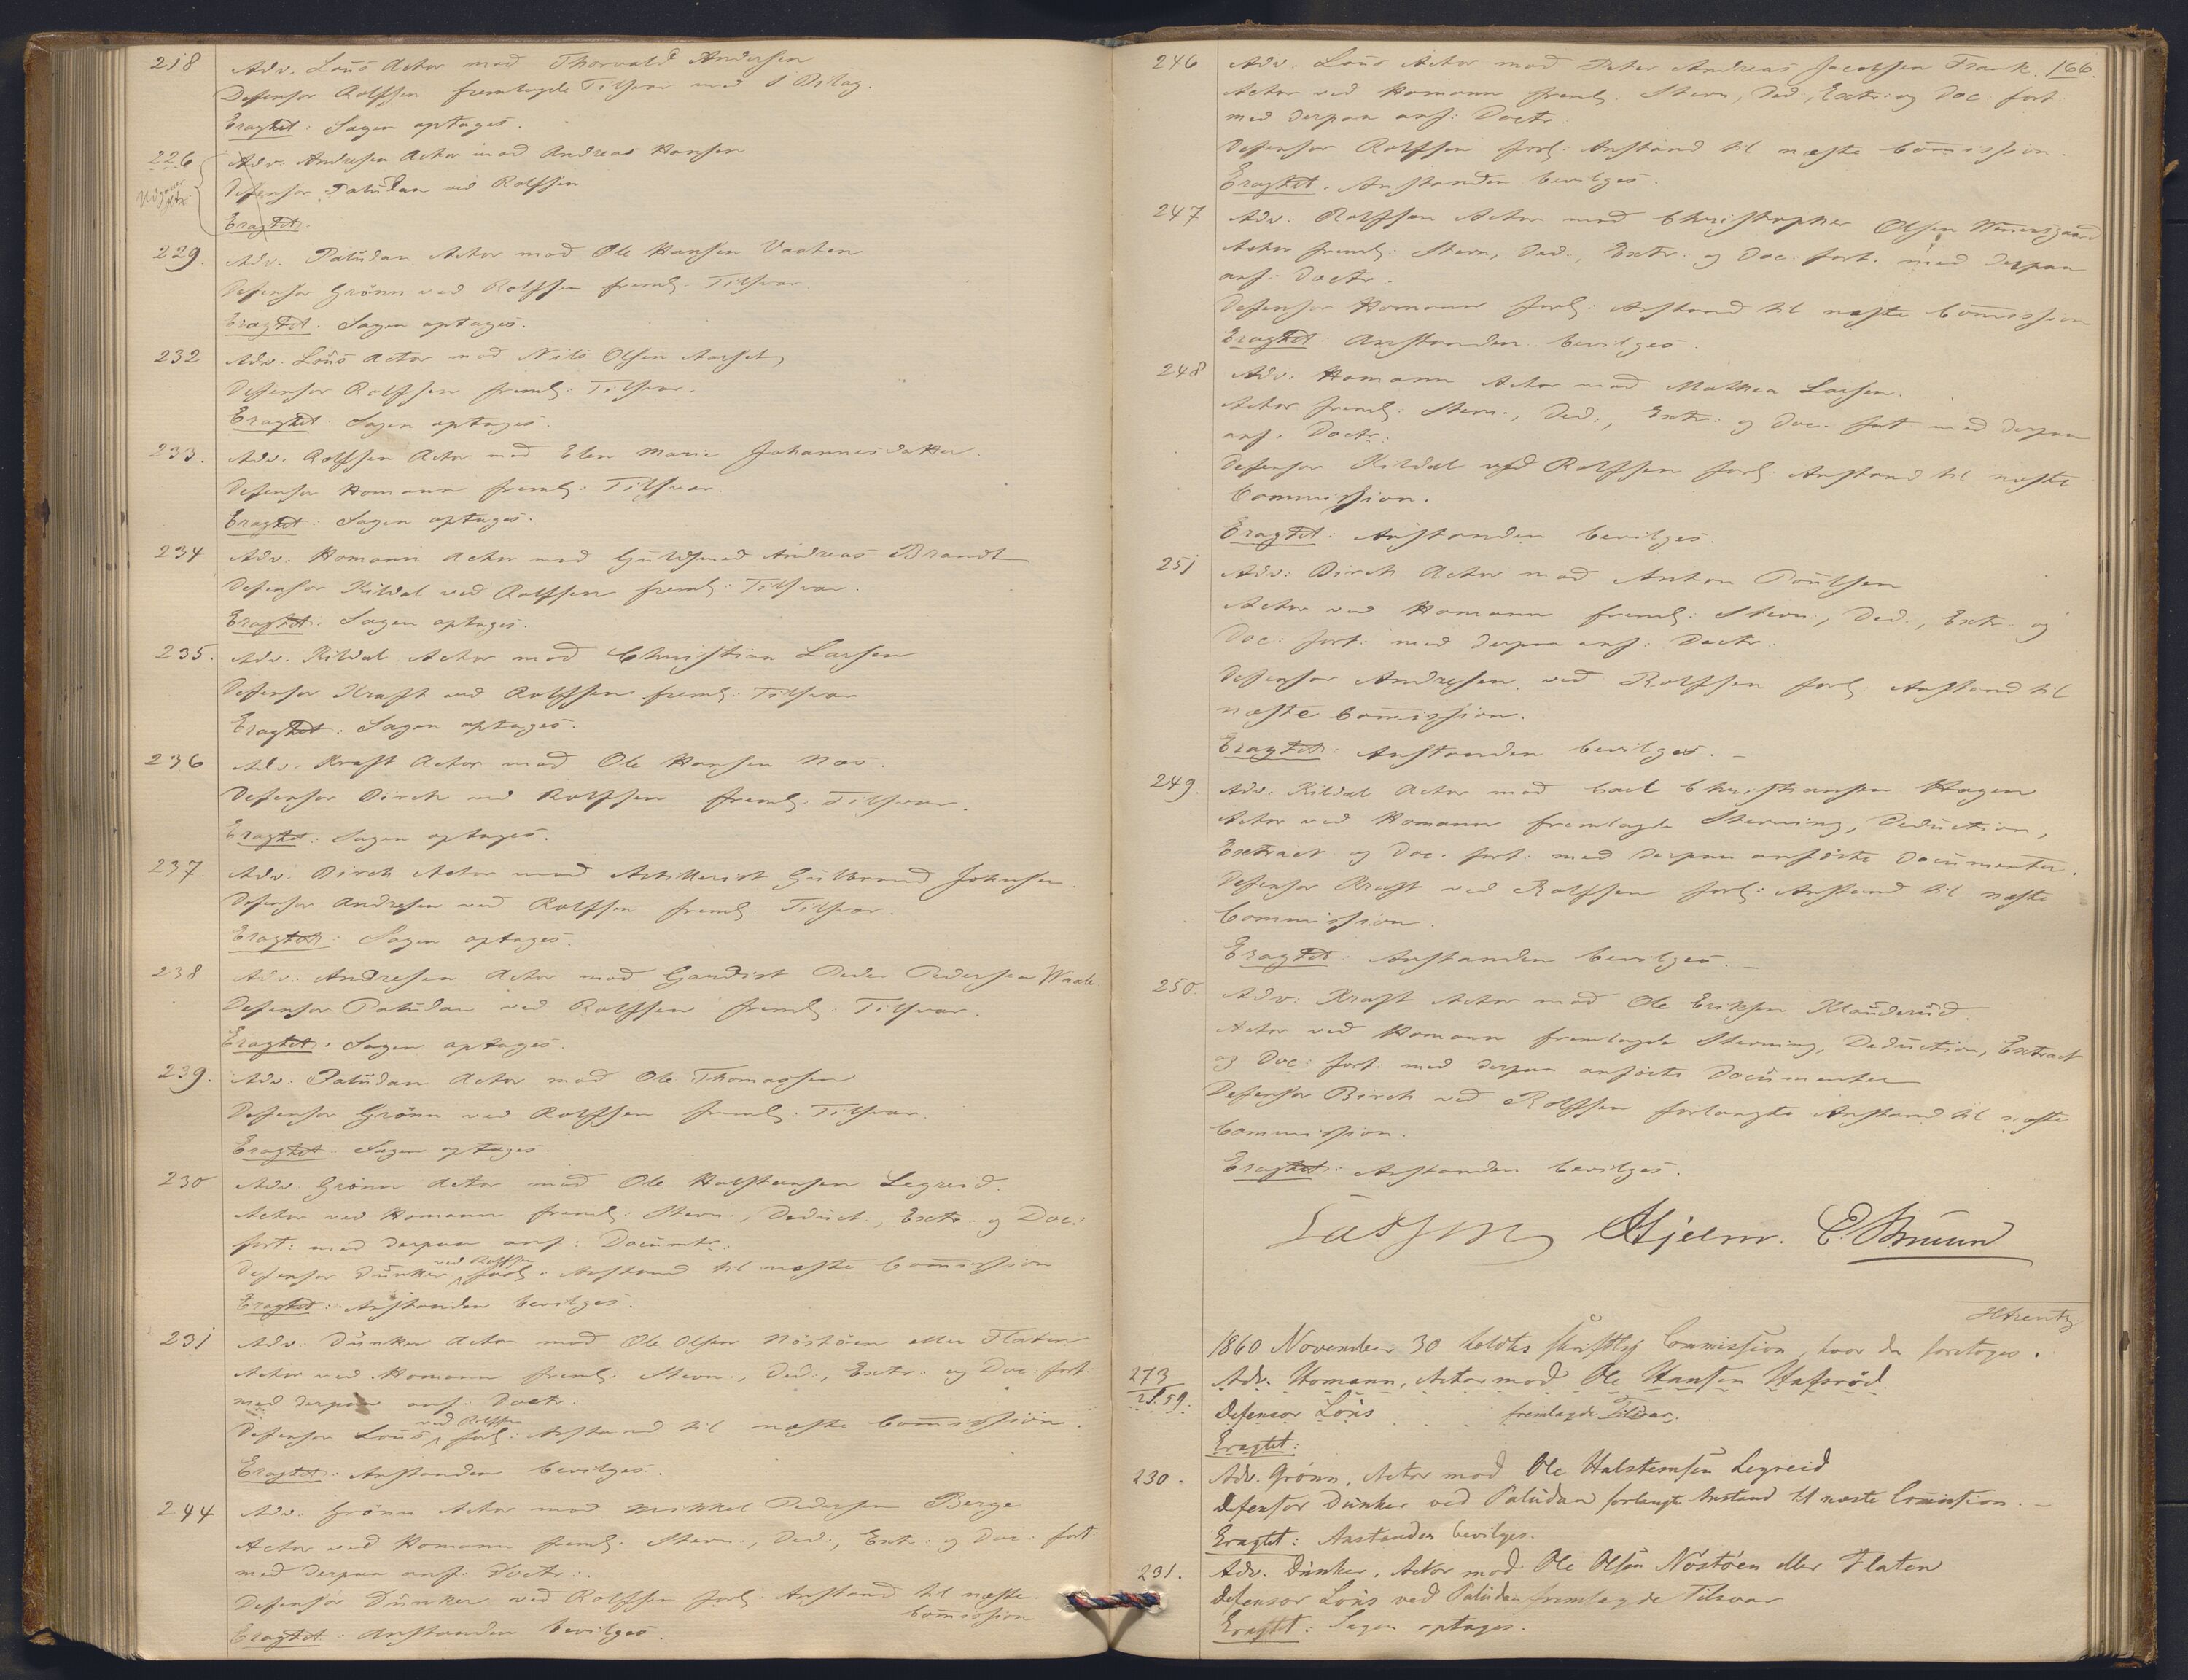 218 Adv. Løus Actor mod Thorvald Andersen
Defensor Rolfsen fremlagde Tilsvar med 1 Bilag.
Eragtet: Sagen optages.
226 Adv. Andresen Actor mod Andreas Hansen
Defensor Paludan ved Rolfsen
Eragtet:
229. Adv. Paludan Actor mod Ole Hansen Vaaten
Defensor Grönn ved Rolfsen freml: Tilsvar.
Eragtet: Sagen optages.
232 Adv. Løus Actor mod Nils Olsen Aarset
Defensor Rolfsen freml: Tilsvar.
Eragtet: Sagen optages.
233. Adv. Rolfsen Actor mod Elen Marie Johannesdatter.
Defensor Homann freml: Tilsvar.
Eragtet: Sagen optages.
234 Adv. Homann Actor mod Guldsmed Andreas Brandt
Defensor Kildal ved Rolfsen freml: Tilsvar.
Eragtet: Sagen optages.
235. Adv. Kildal Actor mod Christian Larsen
Defensor Kraft ved Rolfsen freml: Tilsvar
Eragtet: Sagen optages.
236 Adv. Kraft Actor mod Ole Hansen Næs.
Defensor Birch ved Rolfsen freml: Tilsvar.
Eragtet: Sagen optages.
237. Adv. Birch Actor mod Artillerist Gulbrand Johnsen.
Defensor Andresen ved Rolfsen freml: Tilsvar.
Eragtet: Sagen optages.
238 Adv. Andresen Actor mod Gardist Peder Pedersen Waale
Defensor Paludan ved Rolfsen freml: Tilsvar.
Eragtet: Sagen optages.
239. Adv. Paludan Actor mod Ole Thomassen
Defensor Grönn ved Rolfsen freml: Tilsvar.
Eragtet: Sagen optages.
230 Adv. Grönn Actor mod Ole Halstensen Legreid.
Actor ved Homann freml: Stevn., Deduct., Extr. og Doc:
fort: med derpaa anf: Documtr.
Defensor Dunker ved Rolfsen forl: Anstand til næste Commission
Eragtet: Anstanden bevilges.
231 Adv. Dunker Actor mod Ole Olsen Nöstöen eller Flaten
Actor ved Homann freml: Stevn., Ded:, Extr: og Doc: fort:
med derpaa anf: Doctr:
Defensor Løus ved Rolfsen forl: Anstand til næste Commission.
Eragtet: Anstanden bevilges.
244 Adv. Grönn Actor mod Mikkel Pedersen Berge
Actor ved Homann freml: Stevn:, Ded:, Extr: og Doc: fort:
med derpaa anf: Doctr:
Defensor Dunker ved Rolfsen forl: Anstand til næste
Commission
Eragtet: Anstanden bevilges.
166.
246 Adv. Løus Actor mod Peter Andreas Jacobsen Frank.
Actor ved Homann freml: Stevn, Ded:, Extr: og Doc: fort:
med derpaa anf: Doctr.
Defensor Rolfsen forl: Anstand til næste Commission.
Eragtet: Anstanden bevilges.
247 Adv. Rolfsen Actor mod Christopher Olsen
Actor freml: Stevn, Ded:, Extr: og Doc: fort: med derpaa
anf: Doctr.
Defensor Homann forl: Anstand til næste Commission
Eragtet: Anstanden bevilges.
248 Adv. Homann Actor mod Mathea Larsen.
Actor freml: Stevn:, Ded:, Extr: og Doc: fort med derpaa
anf: Doctr:
Defensor Kildal ved Rolfsen forl: Anstand til næste
Commission.
Eragtet: Anstanden bevilges.
251 Adv: Birch Actor mod Anton Poulsen
Actor ved Homann freml: Stevn:, Ded:, Extr: og
Doc: fort: med derpaa anf: Doctr:
Defensor Andresen ved Rolfsen forl: Anstand til
næste Commission.
Eragtet: Anstanden bevilges.
249. Adv: Kildal Actor mod Carl Christiansen Hagen
Actor ved Homann fremlagde Stevning, Deduction,
Extract og Doc. fort: med derpaa anførte Documenter.
Defensor Kraft ved Rolfsen forl: Anstand til næste
Commission.
Eragtet: Anstanden bevilges.
250. Adv: Kraft Actor mod Ole Eriksen Klauderud.
Actor ved Homann fremlagde Stevning, Deduction, Extract
og Doc: fort: med derpaa anførte Documenter
Defensor Birch ved Rolfsen forlangte Anstand til næste
Commission.
Eragtet: Anstanden bevilges.
Lasson Hjelm. E. Bruun
1860 November 30 holdtes skriftlig Commission, hvor da foretoges.
273 Adv. Homann, Actor mod Ole Hansen Hafsröd.
Defensor Løus fremlagde Tilsvar.
Eragtet:
230. Adv. Grönn, Actor mod Ole Halstensen Legreid
Defensor Dunker ved Paludan forlangte Anstand til næste Commission.
Eragtet: Anstanden bevilges.
231. Adv. Dunker, Actor mod Ole Olsen Nöstöen eller Flaten
Defensor Løus ved Paludan fremlagde Tilsvar
Eragtet: Sagen optages.